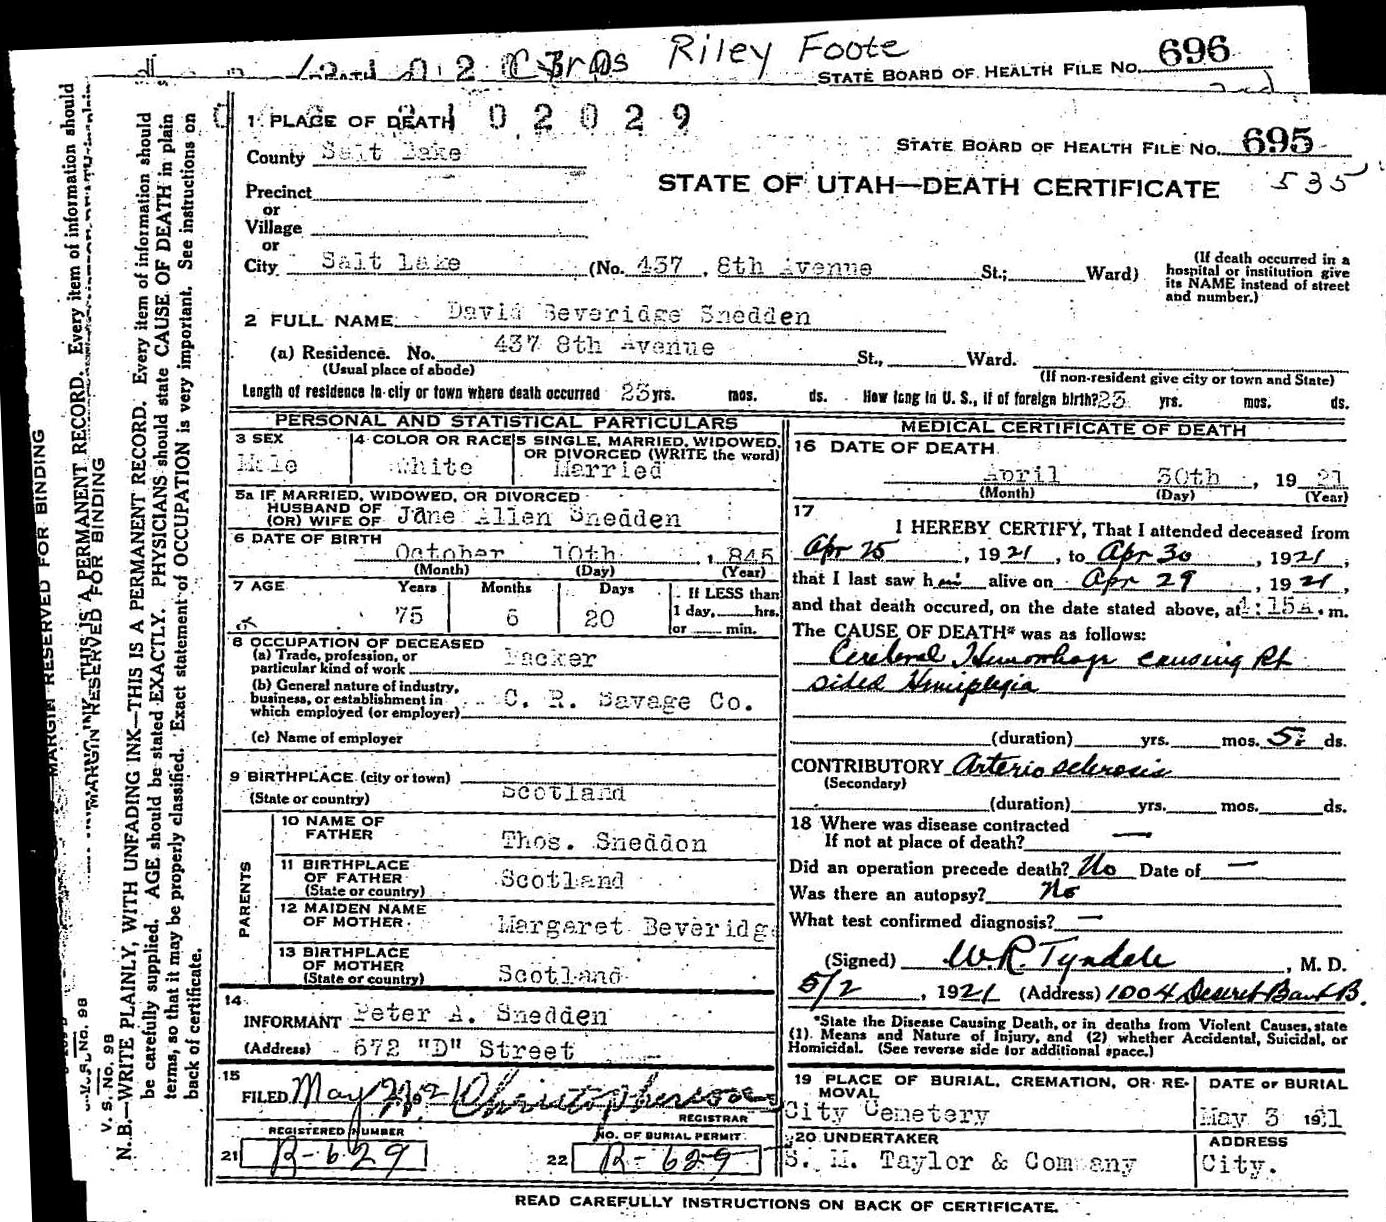 Riley Foote
STATE BOARD OF HEALTH FILE No. 696
2029
1 PLACE OF DEATH
County Salt Lake
STATE BOARD OF HEALTH FILE No. 695
535
Precinct
STATE OF UTAH—DEATH CERTIFICATE
or
Village
or
City Salt Lake (No. 437, 8th Avenue St.; Ward)
(If death occurred in a hospital or institution give its NAME instead of street and number.)
2 FULL NAME David Beveridge Snedden
(a) Residence. No. 437 8th Avenue St., Ward.
(Usual place of abode) (If non-resident give city or town and State)
Length of residence in city or town where death occurred 23 yrs. mos. ds. How long in U. S., if of foreign birth? 23 yrs. mos. ds.
PERSONAL AND STATISTICAL PARTICULARS
3 SEX Male
4 COLOR OR RACE White
5 SINGLE, MARRIED, WIDOWED, OR DIVORCED (WRITE the word) Married
5a IF MARRIED, WIDOWED, OR DIVORCED
HUSBAND OF
(OR) WIFE OF Jane Allen Snedden
6 DATE OF BIRTH
October 10th, 845
(Month) (Day) (Year)
7 AGE Years Months Days If LESS than
75 6 20 1 day, hrs.
or min.
8 OCCUPATION OF DECEASED
(a) Trade, profession, or
particular kind of work Packer
(b) General nature of industry,
business, or establishment in
which employed (or employer) C. R. Savage Co.
(c) Name of employer
9 BIRTHPLACE (city or town)
(State or country) Scotland
PARENTS
10 NAME OF
FATHER Thos. Sneddon
11 BIRTHPLACE
OF FATHER
(State or country) Scotland
12 MAIDEN NAME
OF MOTHER Margaret Beveridg
13 BIRTHPLACE
OF MOTHER
(State or country) Scotland
14
INFORMANT Peter A. Snedden
(Address) 672 "D" Street
15
FILED May
REGISTRAR
REGISTERED NUMBER
21 B-629
No. OF BURIAL PERMIT
22 B-629
MEDICAL CERTIFICATE OF DEATH
16 DATE OF DEATH
April 30th, 1921
(Month) (Day) (Year)
17
I HEREBY CERTIFY, That I attended deceased from
Apr 25, 1921, to Apr 30, 1921,
that I last saw him alive on Apr 29, 1921,
and that death occured, on the date stated above, at 4:15A.m.
The CAUSE OF DEATH* was as follows:
Cerebral Hemorrhage causing Rt
sided Hemiplegia
(duration) yrs. mos. 5 ds.
CONTRIBUTORY Arterio sclerosis
(Secondary)
(duration) yrs. mos. ds.
18 Where was disease contracted
If not at place of death? —
Did an operation precede death? No Date of —
Was there an autopsy? No
What test confirmed diagnosis? —
(Signed) W.R. Tyndale, M. D.
5/2, 1921 (Address) 1004 Deseret Bank B.
*State the Disease Causing Death, or in deaths from Violent Causes, state
(1) Means and Nature of Injury, and (2) whether Accidental, Suicidal, or
Homicidal. (See reverse side for additional space.)
19 PLACE OF BURIAL, CREMATION, OR RE-
MOVAL
City Cemetery
DATE OF BURIAL
May 3 1921
20 UNDERTAKER
S. M. Taylor & Company
ADDRESS
City.
READ CAREFULLY INSTRUCTIONS ON BACK OF CERTIFICATE.
MARGIN RESERVED FOR BINDING
MARGIN RESERVED FOR BINDING
V. S. No. 98
N.B.—WRITE PLAINLY, WITH UNFADING INK—THIS IS A PERMANENT RECORD. Every item of information should
be carefully supplied. AGE should be stated EXACTLY. PHYSICIANS should state CAUSE OF DEATH in plain
terms, so that it may be properly classified. Exact statement of OCCUPATION is very important. See instructions on
back of certificate.